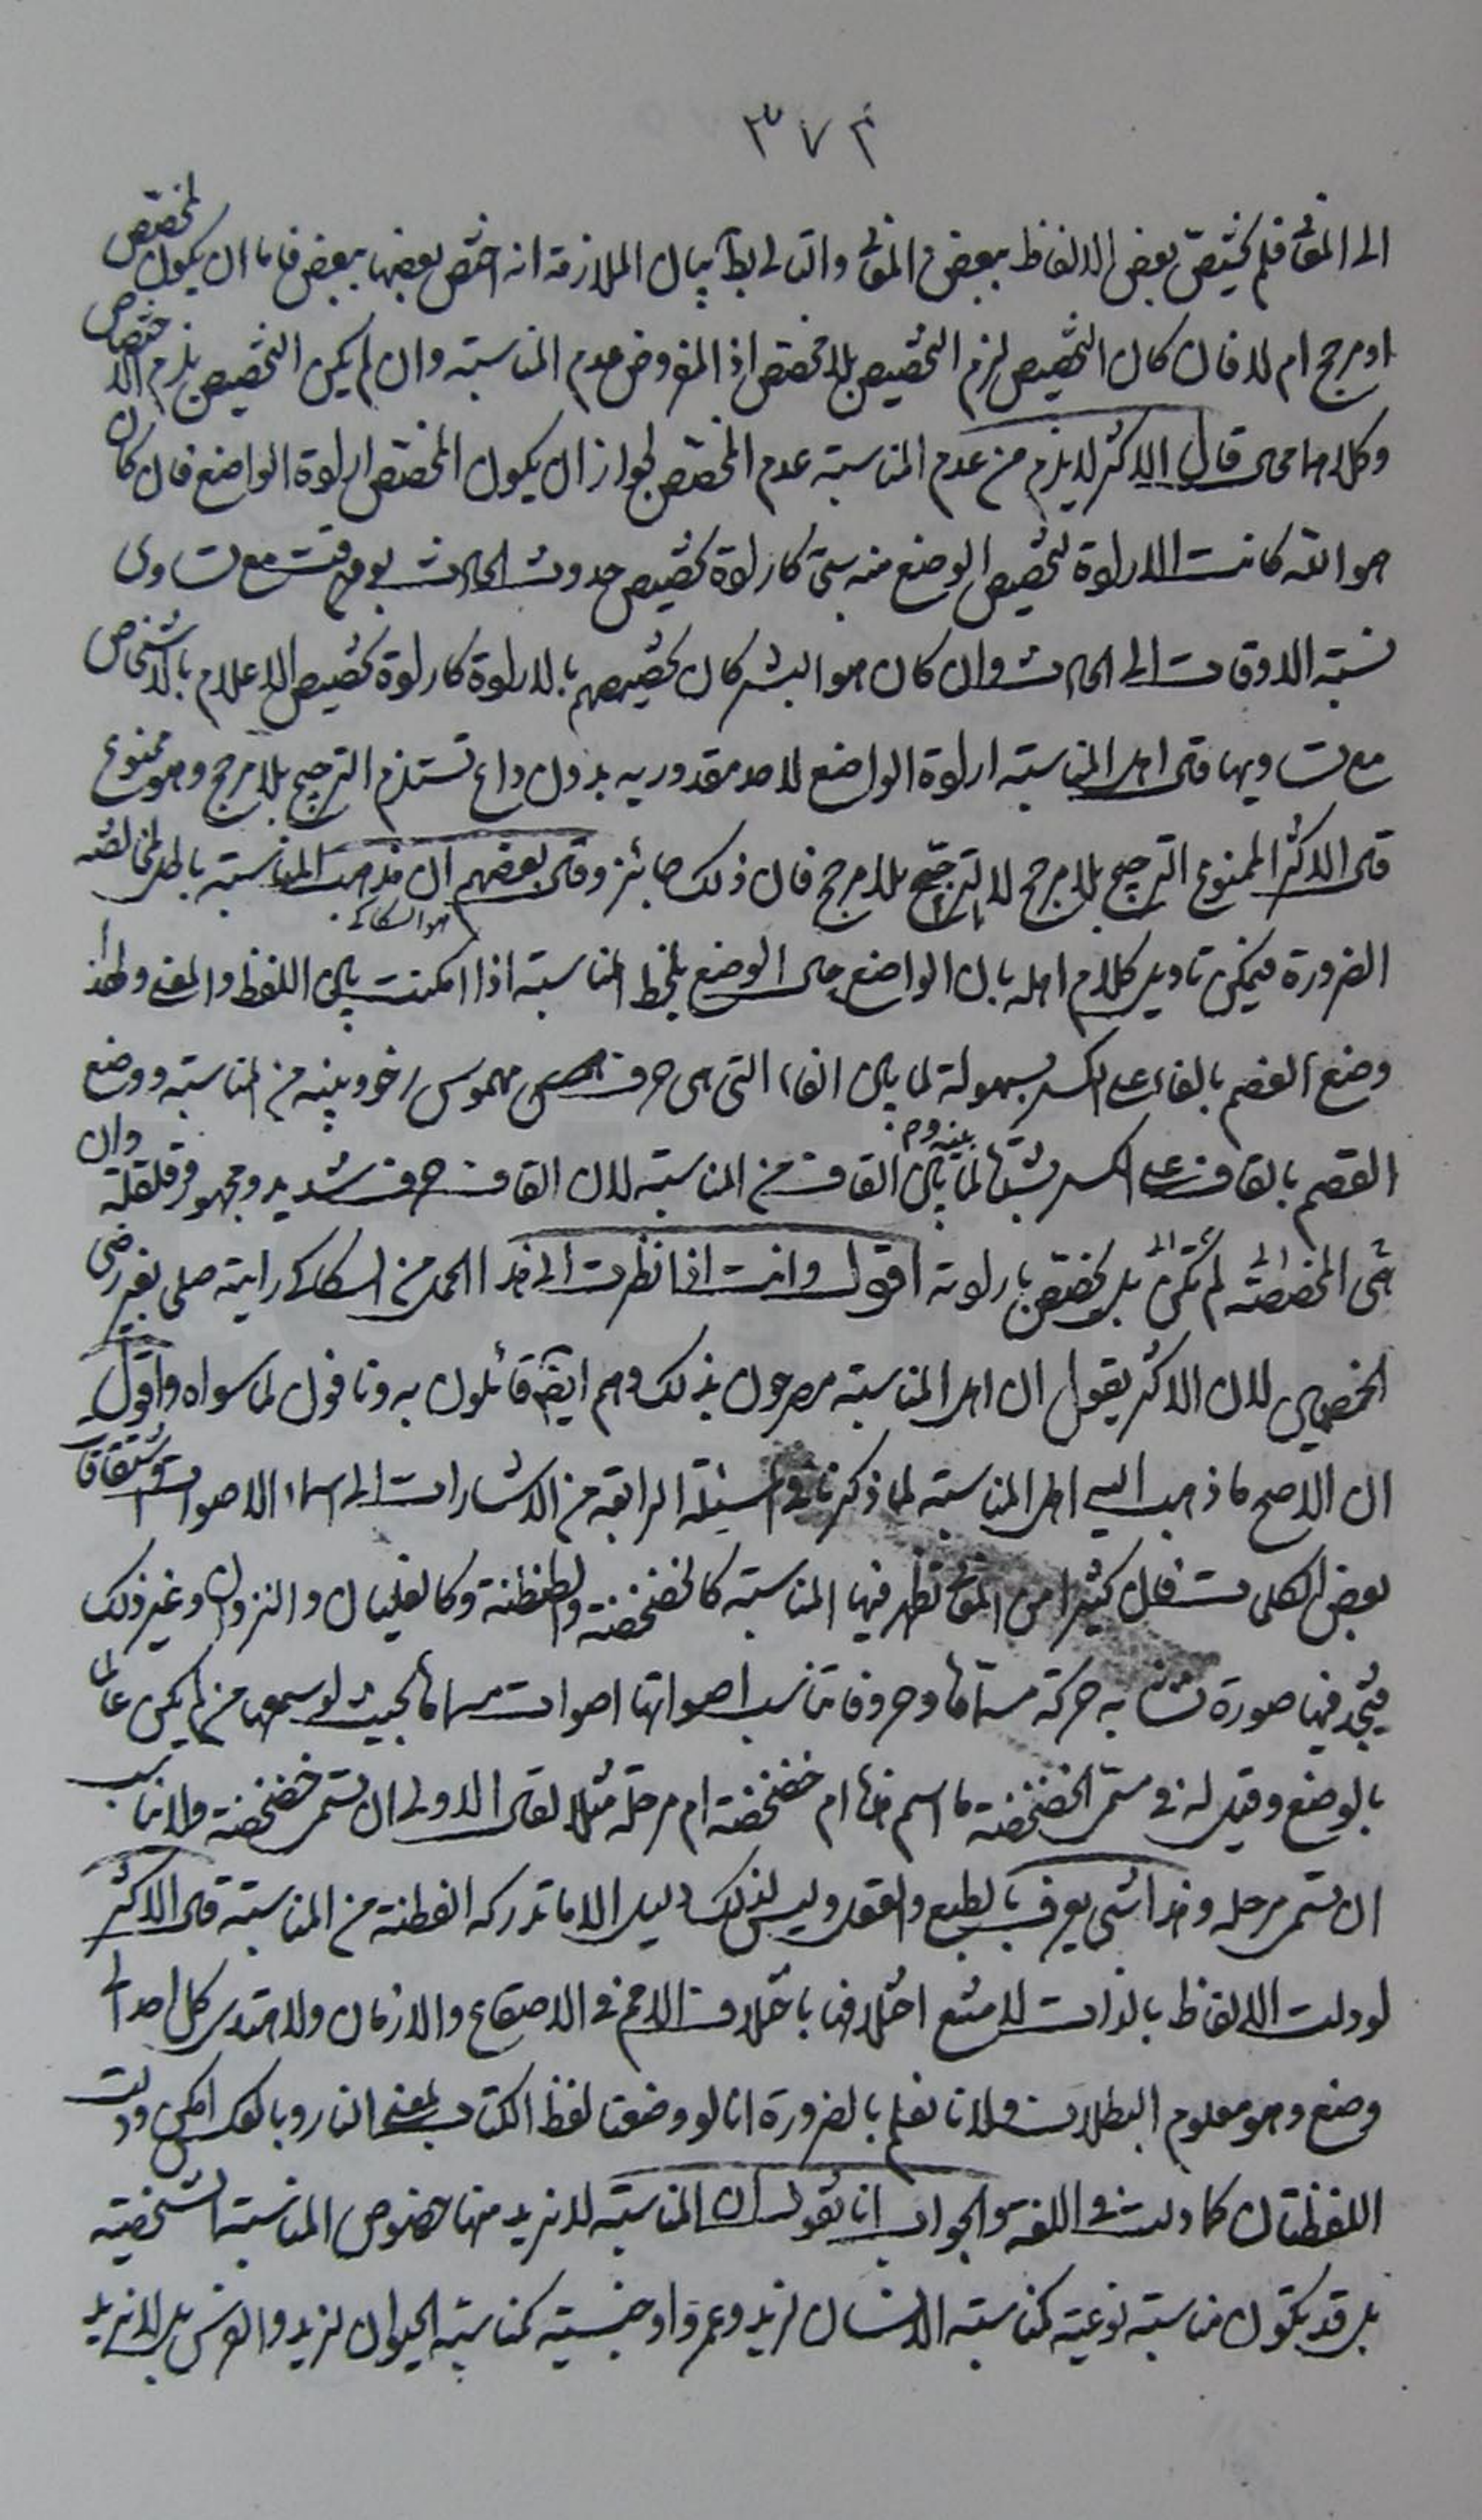 ٣٧٢
الى المعانى فلم يختص بعض الالفاظ ببعض المعانى والتالى بط بيان الملازمة انه اختص بعضها ببعض فاما ان يكون لمخصص
او مرجح ام لا فان كان التخصيص لزم التخصيص بلا مخصص اذ المفروض عدم المناسبة وان لم يكن التخصيص يلزم الاختصاص
وكلاهما مح قال الاكثر لا يلزم من عدم المناسبة عدم المخصص لجواز ان يكون المخصص ارادة الواضع فان كان
هو الله كانت الارادة لتخصيص الوضع منه شئ كارادة تخصيص حدوث الحادث بوقت مع تساوى
نسبة الاوقات الى الحادث وان كان هو البشر كان تخصيصهم بالارادة كارادة تخصيص الاعلام بالاشخاص
مع تساويها قال اهل المناسبة ارادة الواضع لاحد مقدوريه بدون داع تستلزم الترجيح بلا مرجح وهو ممنوع
قال الاكثر الممنوع الترجح بلا مرجح لا الترجيح بلا مرجح فان ذلك جائز وقال بعضهم ان مذهب المناسبة باطل لمخالفته
هو السكاكى
الضرورة فيمكن تاويل كلام اهله بان الواضع حال الوضع يلحظ المناسبة اذا امكنت بين اللفظ والمعنى ولهذا
وضع الفصم بالفاء على الكسر بسهولة لما بين الفاء التى هى حرف مهموس رخو وبينه من المناسبة ووضع
القصم بالقاف على الكسر بشدة لما بينه وبين القاف من المناسبة لان القاف حرف شديد ومجهور وقلقلة وان
هى المخصصة لم تكن بل يختص بارادته اقول وانت اذا نظرت الى هذا الحمل من السكاكى رايته صلى بغير رضى
الخصمين لان الاكثر يقول ان اهل المناسبة مصرحون بذلك وهم ايضا قائلون به ونافون لما سواه واقول
ان الاصح ما ذهب اليه اهل المناسبة لما ذكرنا فى المسئلة الرابعة من الاشارات الى اسماء الاصوات واشتقاق
بعض الكلمات فان كثيرا من المعانى تظهر فيها المناسبة كالخضخضة والطنطنة وكالغليان والنزوان وغير ذلك
فيجد فيها صورة تشابه حركة مسماها وحروفا تناسب اصواتها اصوات مسماها بحيث لو سمعها من لم يكن عالما
بالوضع وقيل له فى مسمى الخضخضة ما اسم هذا ام خضخضة ام مرحلة مثلا لقال الاولى ان تسمى خضخضة ولا يناسب
ان تسمى مرحله وهذا شئ يعرف بالطبع والعقل وليس لذلك دليل الا ما تدركه الفطنة من المناسبة قال الاكثر
لو دلت الالفاظ بالذات لامتنع اختلافها باختلاف الامم فى الاصقاع والازمان ولاهتدى كل احد الى كل
وضع وهو معلوم البطلان ولانا نعلم بالضرورة انا لو وضعنا لفظ الكتاب لمعنى النار وبالعكس امكن ودلت
اللفظتان كما دلت فى اللغة والجواب انا نقول ان المناسبة لا نريد منها خصوص المناسبة الشخصية
بل قد تكون مناسبة نوعية كمناسبة الانسان لزيد وعمرو او جنسية كمناسبة الحيوان لزيد والفرس بل لا نريد